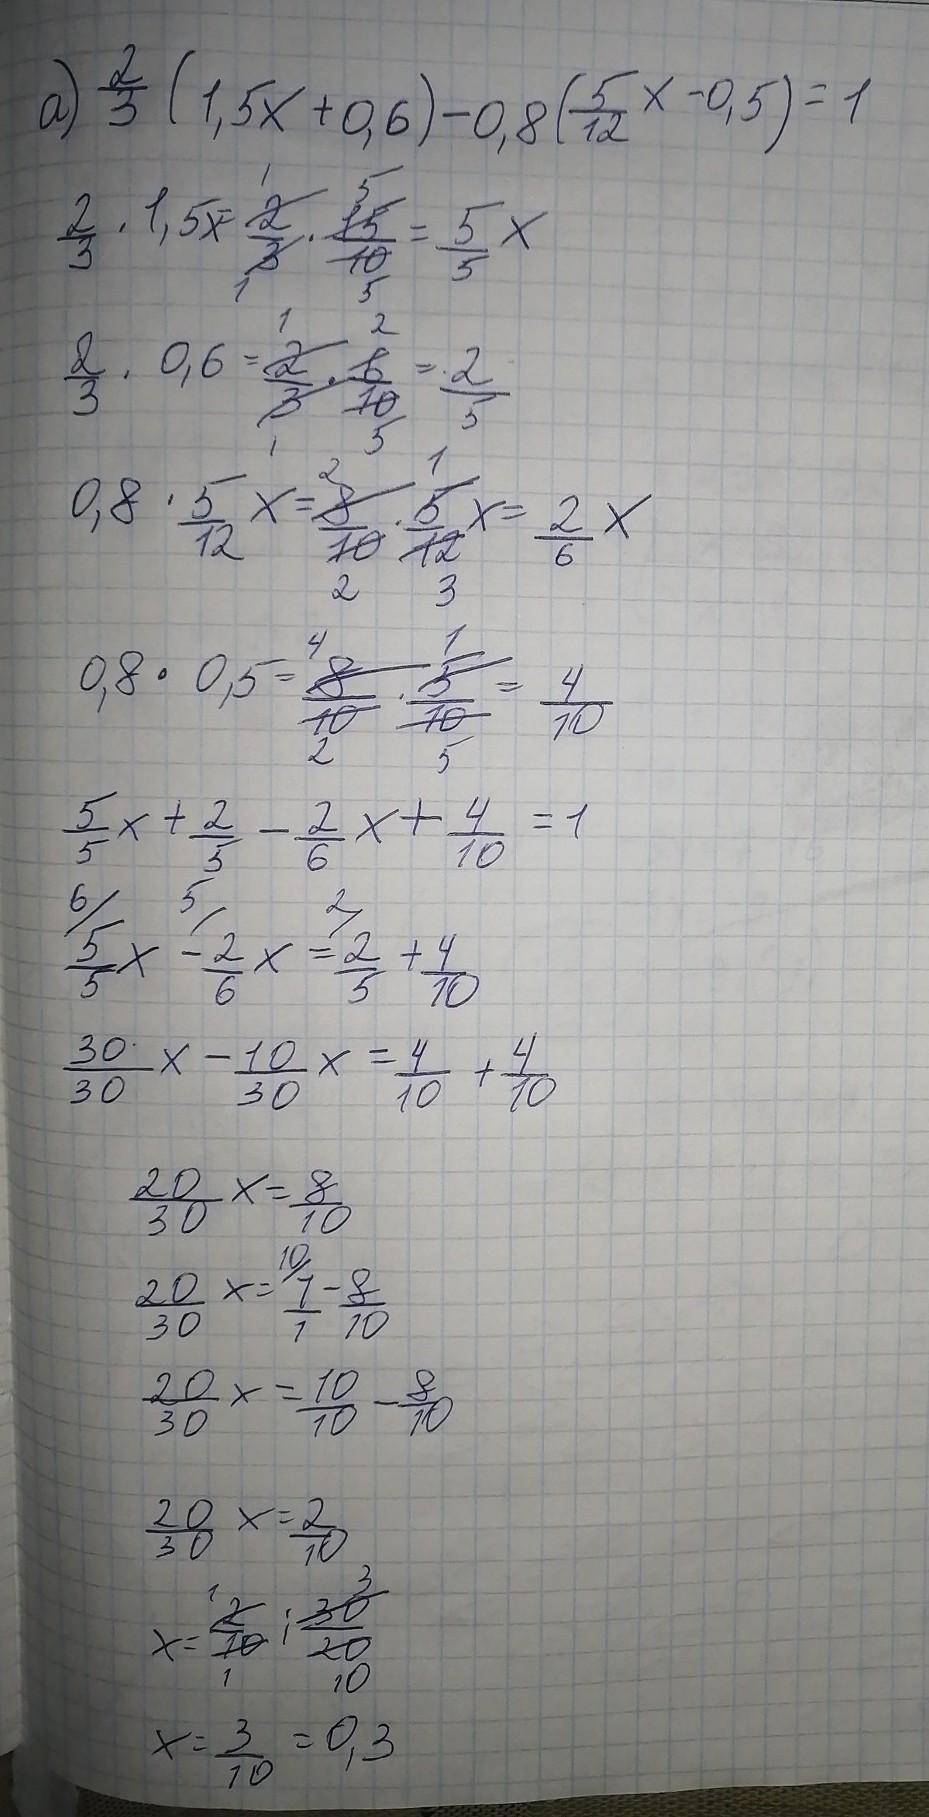 а) 2/3 (1,5x + 0,6) - 0,8 (5/12 x - 0,5) = 1
2/3 · 1,5x = 2/3 · 15/10 = 5/5 x
2/3 · 0,6 = 2/3 · 6/10 = 2/5
0,8 · 5/12 x = 8/10 · 5/12 x = 2/6 x
0,8 · 0,5 = 8/10 · 5/10 = 4/10
5/5 x + 2/5 - 2/6 x + 4/10 = 1
6/ 5/ 2/
5/5 x - 2/6 x = 2/5 + 4/10
30/30 x - 10/30 x = 4/10 + 4/10
20/30 x = 8/10
20/30 x = 10/ 1/1 - 8/10
20/30 x = 10/10 - 8/10
20/30 x = 2/10
x = 2/10 : 30/20
x = 3/10 = 0,3